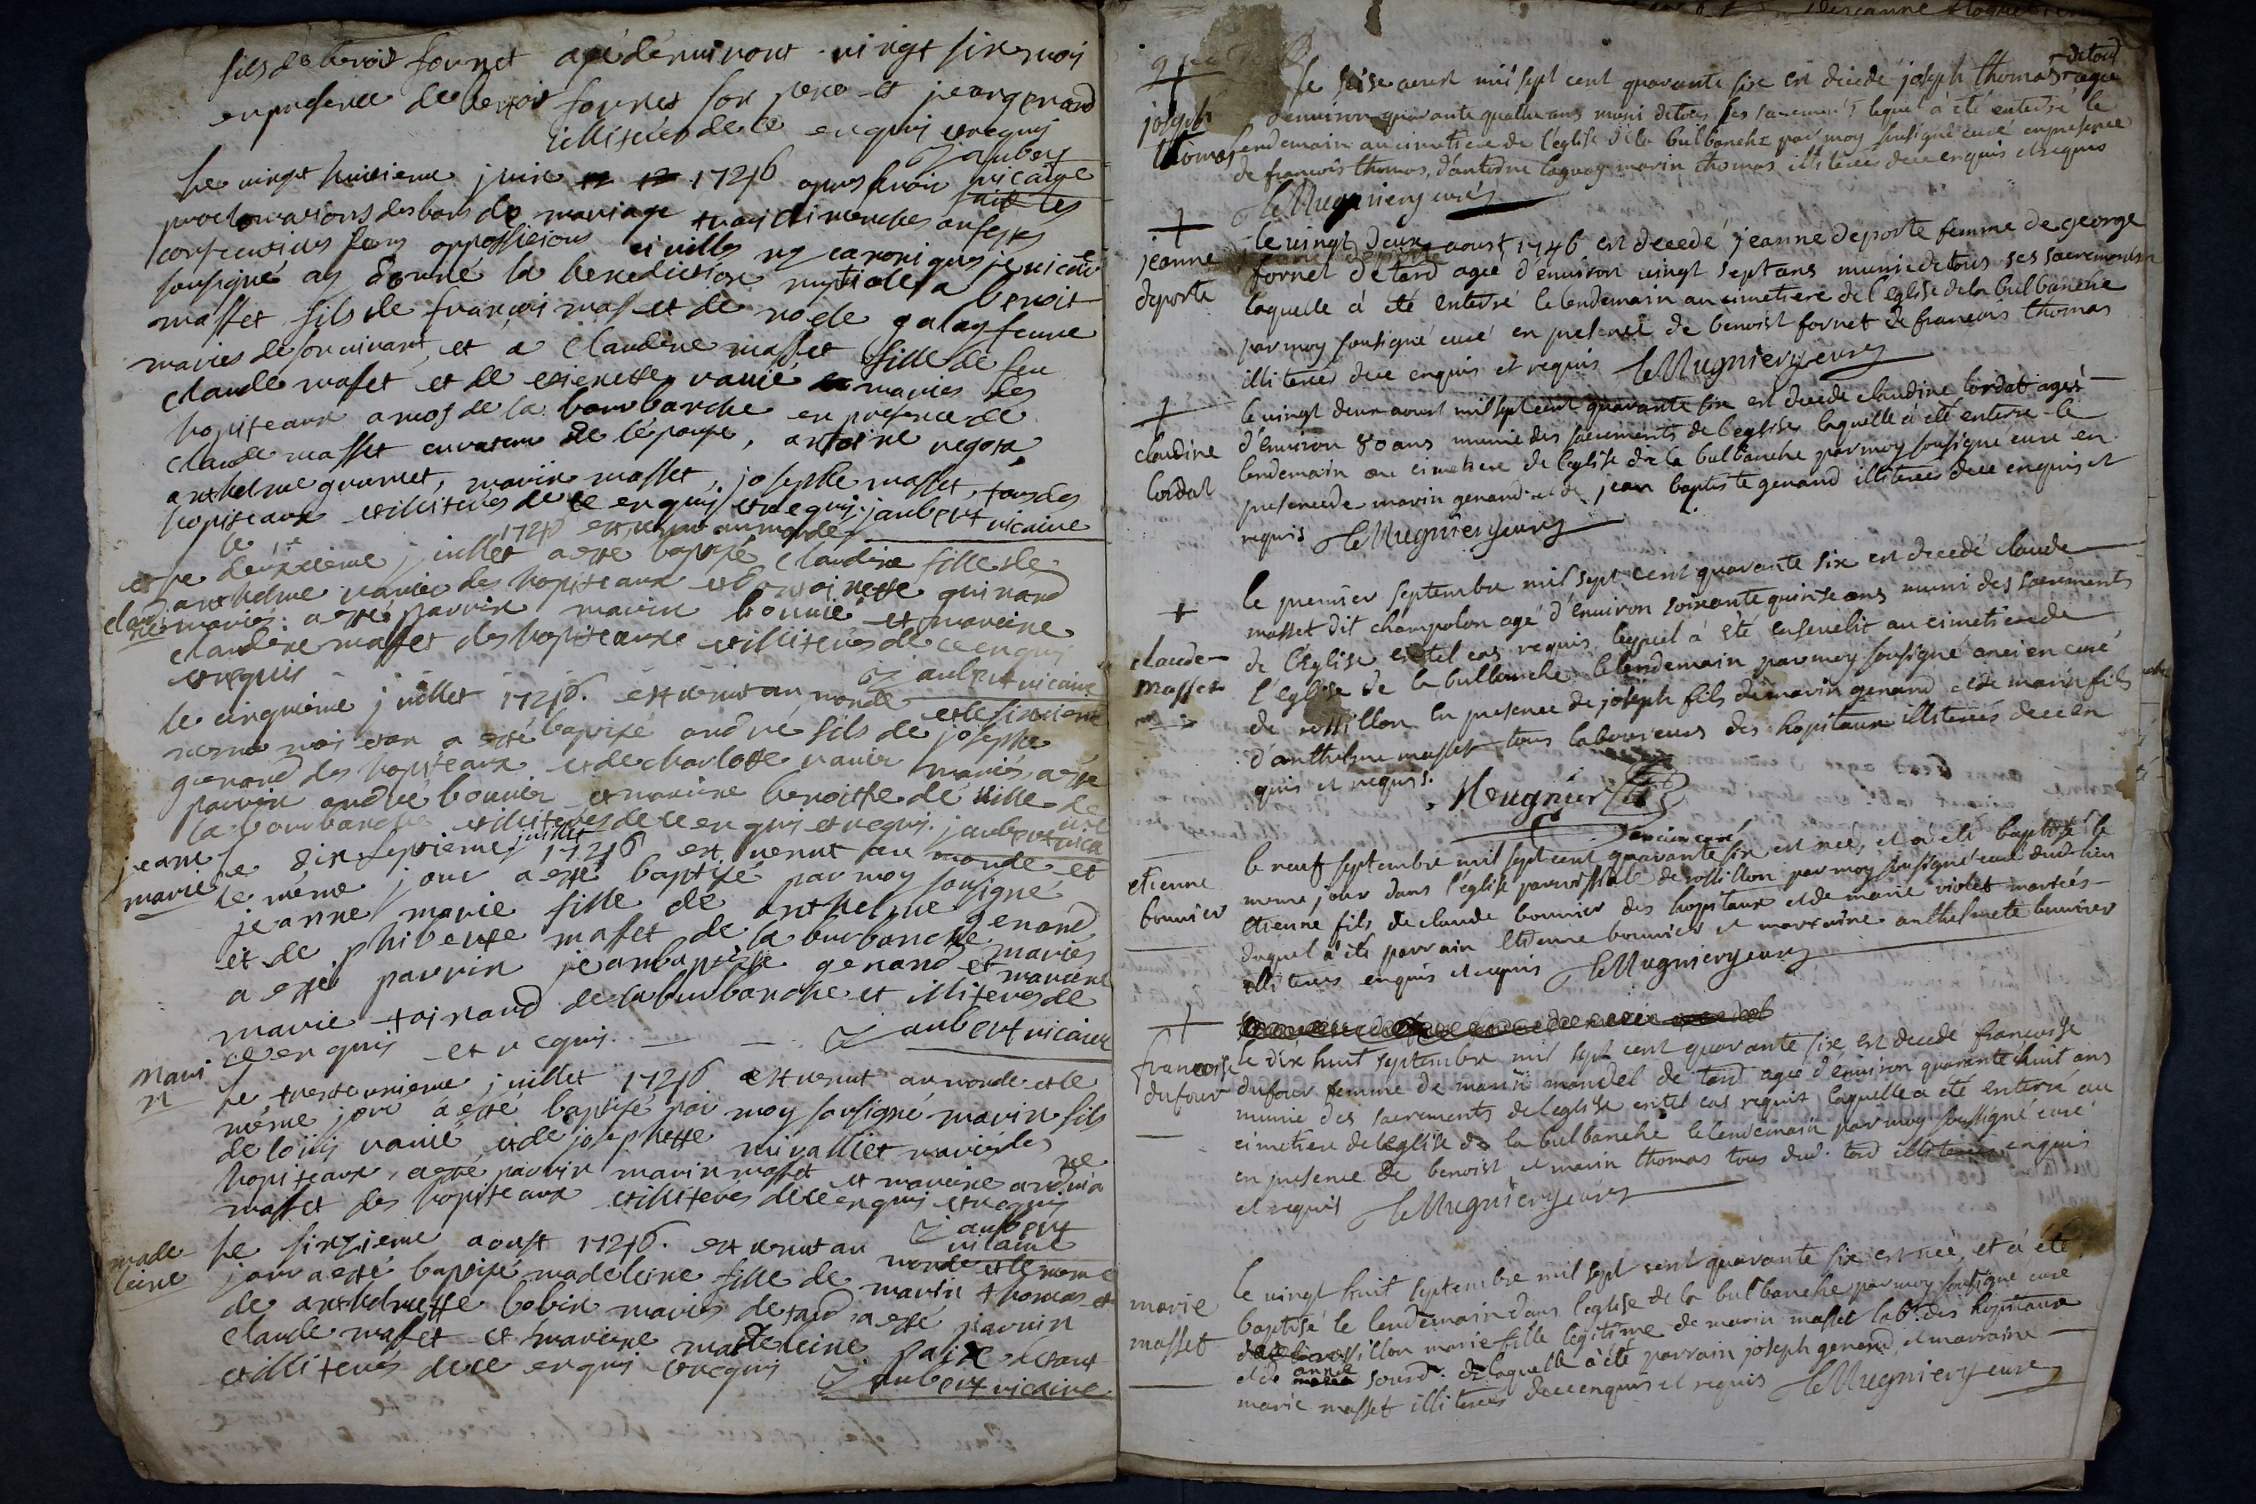 fils de benoit fornet agé denviront vingt six mois
en presence de benoit fornet son pere et jean genand
illiteres de ce enquis et requis
J aubert vicaire
Le vingt huitieme juin 1746 apres avoir fait les
proclamations des bans de mariage trois dimenches ou festes
consecutives sans oppossitions civilles ny canoniques je vicaire
sousigné ay donné la benediction nuptiale a benoit
masset fils de françois mass et de galay femme
mariés de son vivant et a Claudine masset fille de feu
claude maset et de etienette vanié mariés des
hopiteaux amos de la bourbanche en presence de
claude masset curateur de l'epouse, antoine
anthelme masset, marin masset, josephe masset, tous des
hopiteaux et illiteres de ce enquis et requis. jaubert vicaire
1746 est venut au monde
et
clau
dine
le deuxieme juillet a esté baptisé claudine fille de
anthelme vanié des hopiteaux et benoitte guinand
mariés. a esté parrin marin bonnié et mareine
claudine masset des hopiteaux et illiteres de ce enquis
et requis
J aubert vicaire
le cinquieme juillet 1746. est venut au monde et le sixieme
meme mois et an a esté baptisé andré fils de josephe
genand des hopiteaux et de charlotte vanier mariés, a esté
parrin andré bonnier et mareine benoitte de
la bourbanche et illiteres de ce enquis et requis. jaubert vicaire
jeane
marie
le dix septieme juillet 1746 est venut au monde et
le même jour a esté baptisé par moy sousigné
jeanne marie fille de anthelme genand
et de philberte masset de la burbanche mariés
a esté parrin jeanbaptiste genand et mareine
marie toinand de la burbanche et illiteres de
ce enquis et requis.
J aubert vicaire
Mari
n
Le trente unieme juillet 1746 est venut au monde et le
même jour a esté baptisé par moy sousigné marin fils
de loüis vanié et de josephette mivalliet mariés des
hopiteaux, a esté parrin marin masset et mareine andréa
masset des hopiteaux et illiteres de ce enquis et requis
J aubert
vicaire
made
leine
Le sixzieme aoust 1746. est venut au monde et le meme
jour a esté baptisé madeleine fille de marin thomas et
de anthelmette bobin mariés de tard a esté parrin
claude masset et mareine madeleine paix
et illiteres de ce enquis et requis
J aubert vicaire
joseph
thomas
le seise aoust mil sept cent quarante six est décedé joseph thomas de tard agé
d'environ quarante quattre ans muni de tous ses sacrements lequel a été enterré le
lendemain au cimetiere de l'eglise de la bulbanche par moy sousigné curé en presence
de françois thomas, d'antoine marin thomas illiteres de ce enquis et requis
Le Mugniery curé
jeanne
deporte
le vingt deux aoust 1746 est decedé jeanne deporte femme de george
fornet de tard agé d'environ vingt sept ans munie de tous ses sacrements
laquelle à été enterré le lendemain au cimetiere de l'eglise de la bulbanche
par moy sousigné curé en presence de benoist fornet de francois thomas
illiteres de ce enquis et requis LeMugniery curé
claudine
cordat
le vingt deux aoust mil sept cent quarante six est decedé claudine cordat agée
d'environ 80 ans munie des sacrements de l'eglise laquelle à été enterré le
lendemain au cimetiere de l'eglise de la bulbanche par moy sousigné curé en
presence de marin genand et de jean baptiste genand illiteres de ce enquis et
requis LeMugniery curé
claude
masset
le premier septembre mil sept cent quarante six est decedé claude
masset dit champolon agé d'environ soixante quinse ans muni des sacrements
de l'eglise en tel cas requis lequel à été enseveli au cimetiere de
l'eglise de la bulbanche le lendemain par moy sousigné ancien curé
de rossillon en presence de joseph fils de marin genand et de marin fils
d'anthelme masset tous laboureurs des hopitaux illiteres de ce en
quis et requis.
Meugnier
ancien curé
etienne
bonnier
le neuf septembre mil sept cent quarante six est née, et à été baptisé le
meme jour dans l'église paroissiale de rossillon par moy sousigné curé dud. lieu
etienne fils de claude bonnier des hopitaux et de marie violet mariés
duquel à été parrain etienne bonnier et marraine anthelmete bonnier
illiteres enquis et requis LeMugniery curé
francoise
dufour
le dix huit septembre mil sept cent quarante six est decedé françoise
dufour femme de marin mandel de tard agé d'environ quarante huit ans
munie des sacrements de l'eglise en tel cas requis laquelle a été enterré au
cimetiere de l'eglise de la bulbanche le lendemain par moy sousigné curé
en presence de benoist et marin thomas tous dud. tard illiteres enquis
et requis LeMugniery curé
marie
masset
le vingt huit septembre mil sept cent quarante six est née, et à été
baptisé le lendemain dans l'eglise de la bulbanche par moy sousigné curé
de rossillon marie fille legitime de marin masset labr. des hopitaux
et de anne sourd. de laquelle à été parrain joseph genand, et marraine
marie masset illiteres de ce enquis et requis LeMugniery curé